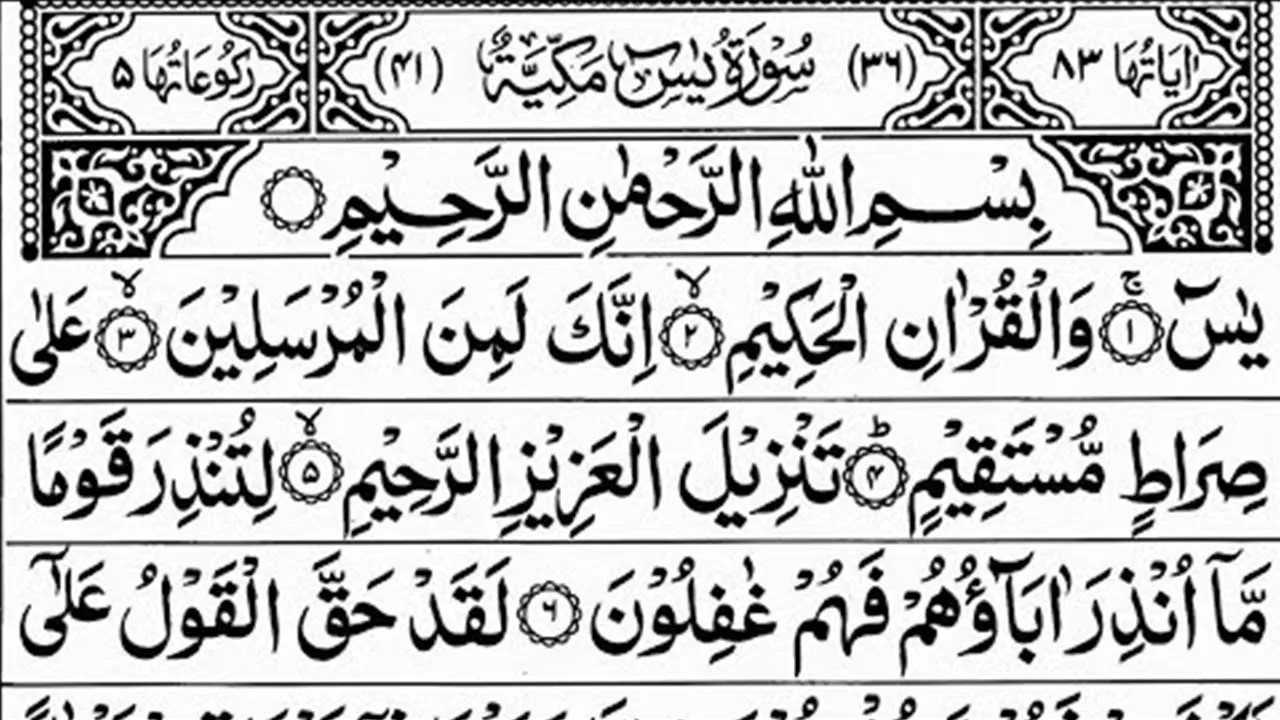 اٰیَاتُهَا ٨٣ (٣٦) سُوْرَةُ يٰسٓ مَكِّيَّةٌ (٤١) رُكُوْعَاتُهَا ٥
بِسْمِ اللّٰهِ الرَّحْمٰنِ الرَّحِيْمِ
يٰسٓ ۚ ١ وَالْقُرْاٰنِ الْحَكِيْمِ ۙ ٢ اِنَّكَ لَمِنَ الْمُرْسَلِيْنَ ۙ ٣ عَلٰى
صِرَاطٍ مُّسْتَقِيْمٍ ؕ ۴ تَنْزِيْلَ الْعَزِيْزِ الرَّحِيْمِ ۙ ۵ لِتُنْذِرَ قَوْمًا
مَّاۤ اُنْذِرَ اٰبَآؤُهُمْ فَهُمْ غٰفِلُوْنَ ۶ لَقَدْ حَقَّ الْقَوْلُ عَلٰٓى